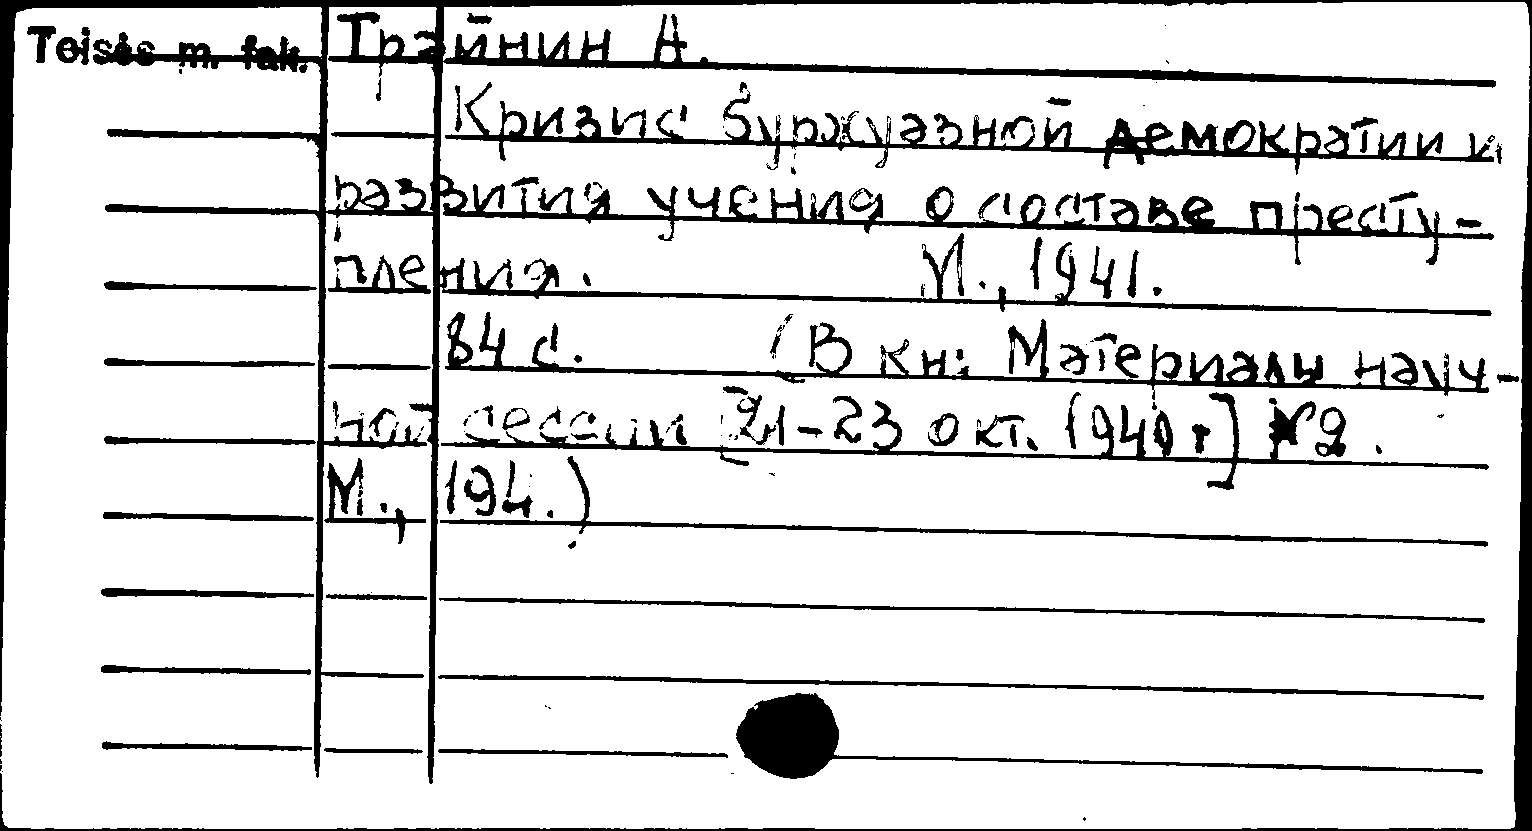 Teisės m. fak. Трайнин А.
Кризис буржуазной демократии и
развития учения о составе престу-
пления. М., 1941.
84 с. (В кн: Материалы науч-
ной сессии [21-23 окт. 1940 г] №2.
М., 194.)